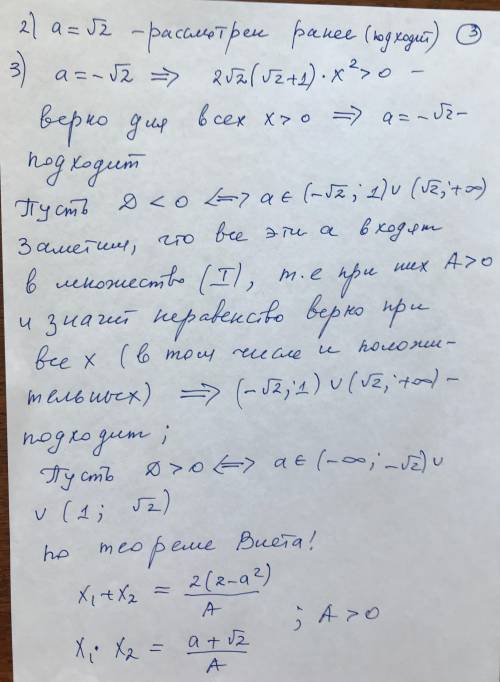 2) a = √2 - рассмотрен ранее (подходит) ③
3) a = -√2 ⟹ 2√2(√2+1)·x² > 0 -
верно для всех x > 0 ⟹ a = -√2 -
подходит
Пусть D < 0 ⟺ a ∈ (-√2; 1) ∪ (√2; +∞)
Заметим, что все эти a входят
в множество (I), т.е при них A > 0
и значит неравенство верно при
все x (в том числе и положи-
тельных) ⟹ (-√2; 1) ∪ (√2; +∞) -
подходит;
Пусть D > 0 ⟺ a ∈ (-∞; -√2) ∪
∪ (1; √2)
по теореме Виета!
x₁ + x₂ = 2(2-a²)/A
; A > 0
x₁ · x₂ = a + √2/A